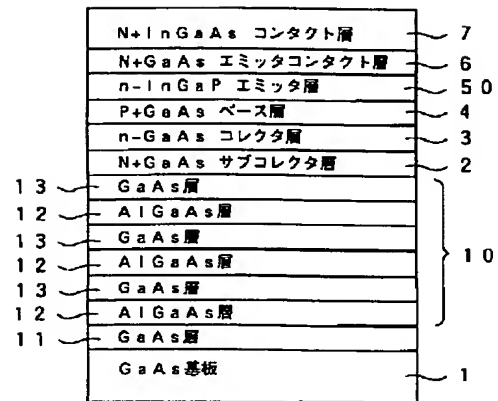 N+InGaAs コンタクト層 7
N+GaAs エミッタコンタクト層 6
n-InGaP エミッタ層 50
P+GaAs ベース層 4
n-GaAs コレクタ層 3
N+GaAs サブコレクタ層 2
13 GaAs層
12 AlGaAs層
13 GaAs層
10
12 AlGaAs層
13 GaAs層
12 AlGaAs層
11 GaAs層
GaAs基板 1